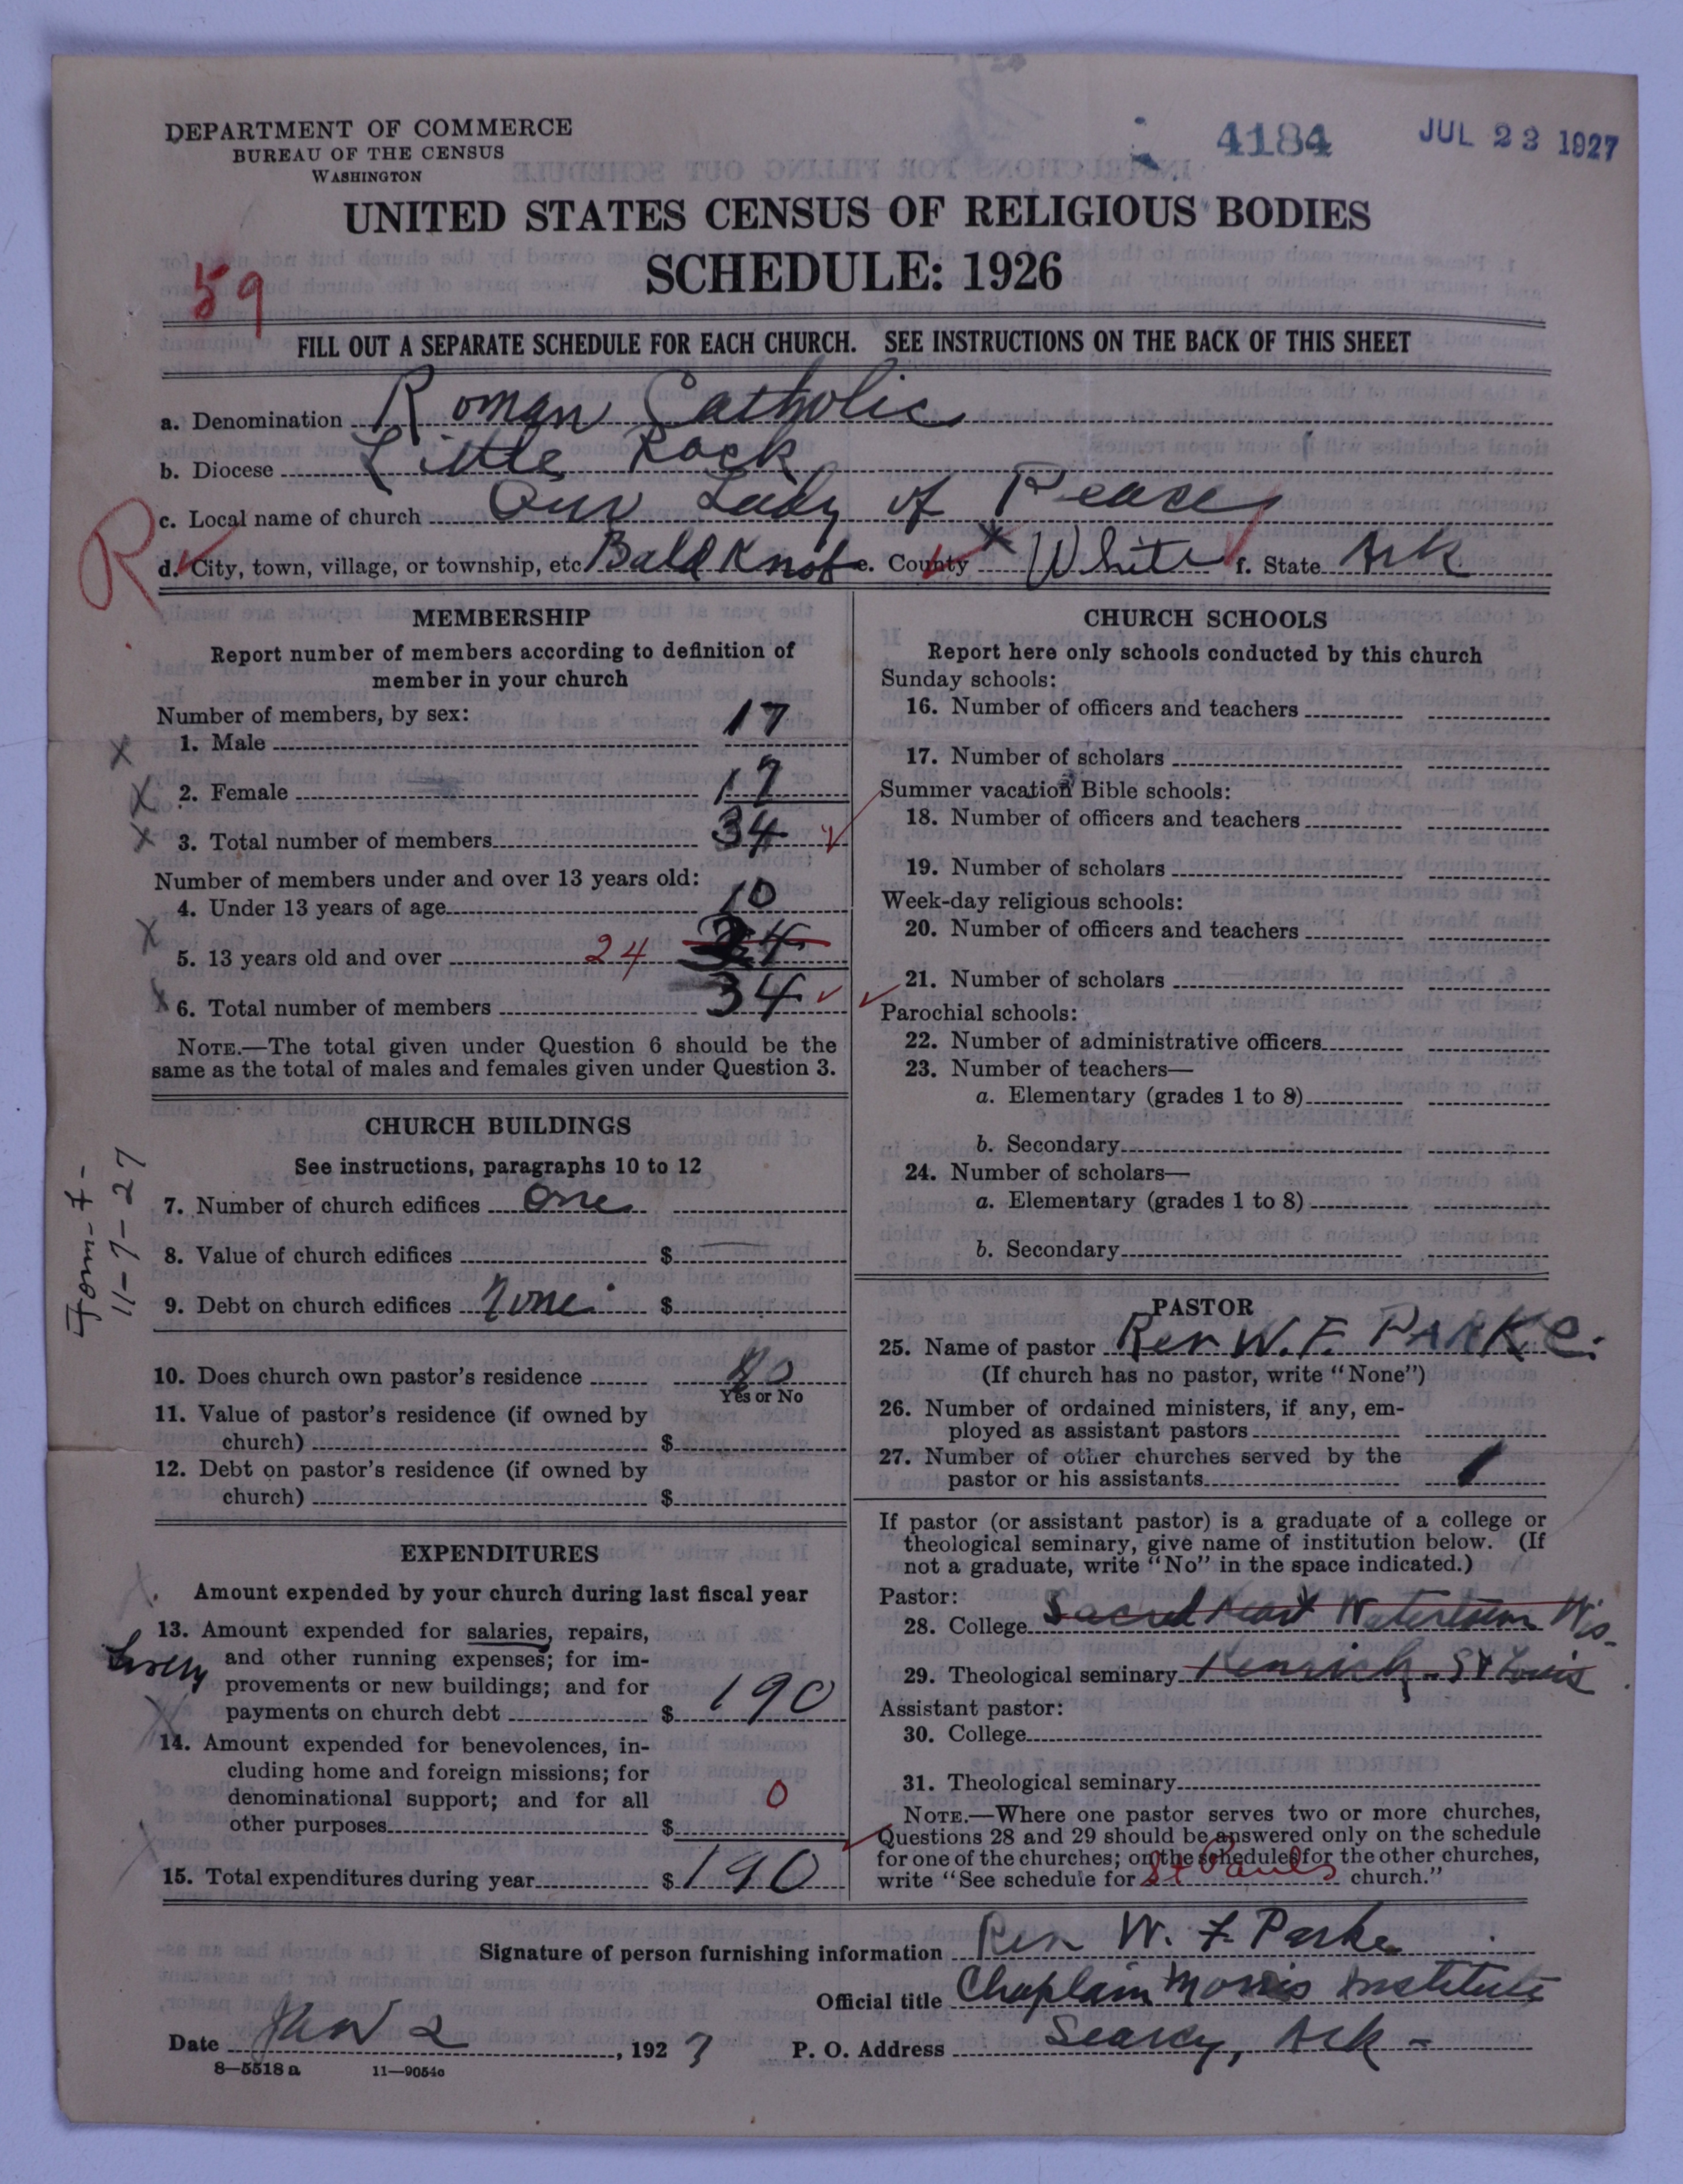 DEPARTMENT OF COMMERCE
BUREAU OF THE CENSUS
WASHINGTON
4184
JUL 23 1927
UNITED STATES CENSUS OF RELIGIOUS BODIES
SCHEDULE: 1926
59
FILL OUT A SEPARATE SCHEDULE FOR EACH CHURCH. SEE INSTRUCTIONS ON THE BACK OF THIS SHEET
a. Denomination Roman Catholic
b. Diocese Little Rock
c. Local name of church Our Lady of Peace
R
d. City, town, village, or township, etc Bald Knob e. County White f. State Ark
MEMBERSHIP
Report number of members according to definition of
member in your church
Number of members, by sex:
1. Male 17
2. Female 17
3. Total number of members 34
Number of members under and over 13 years old:
4. Under 13 years of age 10
5. 13 years old and over 24 24
6. Total number of members 34
NOTE.—The total given under Question 6 should be the
same as the total of males and females given under Question 3.
CHURCH BUILDINGS
See instructions, paragraphs 10 to 12
7. Number of church edifices one
8. Value of church edifices $
9. Debt on church edifices None $
Form-7-
11-7-27
10. Does church own pastor's residence No
Yes or No
11. Value of pastor's residence (if owned by
church) $
12. Debt on pastor's residence (if owned by
church) $
EXPENDITURES
Amount expended by your church during last fiscal year
13. Amount expended for salaries, repairs,
and other running expenses; for im-
provements or new buildings; and for
payments on church debt $ 190
14. Amount expended for benevolences, in-
cluding home and foreign missions; for
denominational support; and for all
other purposes $ 0
15. Total expenditures during year $ 190
CHURCH SCHOOLS
Report here only schools conducted by this church
Sunday schools:
16. Number of officers and teachers
17. Number of scholars
Summer vacation Bible schools:
18. Number of officers and teachers
19. Number of scholars
Week-day religious schools:
20. Number of officers and teachers
21. Number of scholars
Parochial schools:
22. Number of administrative officers
23. Number of teachers—
a. Elementary (grades 1 to 8)
b. Secondary
24. Number of scholars—
a. Elementary (grades 1 to 8)
b. Secondary
PASTOR
25. Name of pastor Rev W. F. PARKE.
(If church has no pastor, write "None")
26. Number of ordained ministers, if any, em-
ployed as assistant pastors
27. Number of other churches served by the
pastor or his assistants 1
If pastor (or assistant pastor) is a graduate of a college or
theological seminary, give name of institution below. (If
not a graduate, write "No" in the space indicated.)
Pastor:
28. College Sacred Heart Watertown Wis.
29. Theological seminary Kenrick - St Louis
Assistant pastor:
30. College
31. Theological seminary
NOTE.—Where one pastor serves two or more churches,
Questions 28 and 29 should be answered only on the schedule
for one of the churches; on the schedules for the other churches,
write "See schedule for St Pauls church."
Signature of person furnishing information Rev W. F. Parke
Official title Chaplain Morris Institute
Date Jan 2, 1927 P. O. Address Searcy, Ark -
8—5518 a 11—9054a